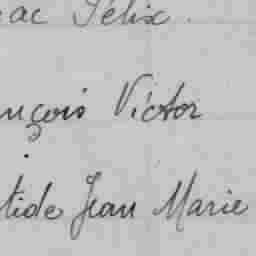 ac Félix.
nçois Victor
tide Jean Marie